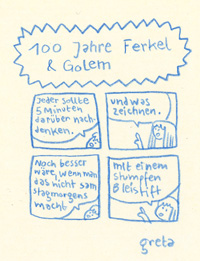 100 Jahre Ferkel
& Golem
Jeder sollte
5 Minuten
darüber nach-
denken.
und was
zeichnen.
Noch besser
wäre, wenn man
das nicht sam
stagmorgens
macht
mit einem
stumpfen
Bleistift
greta